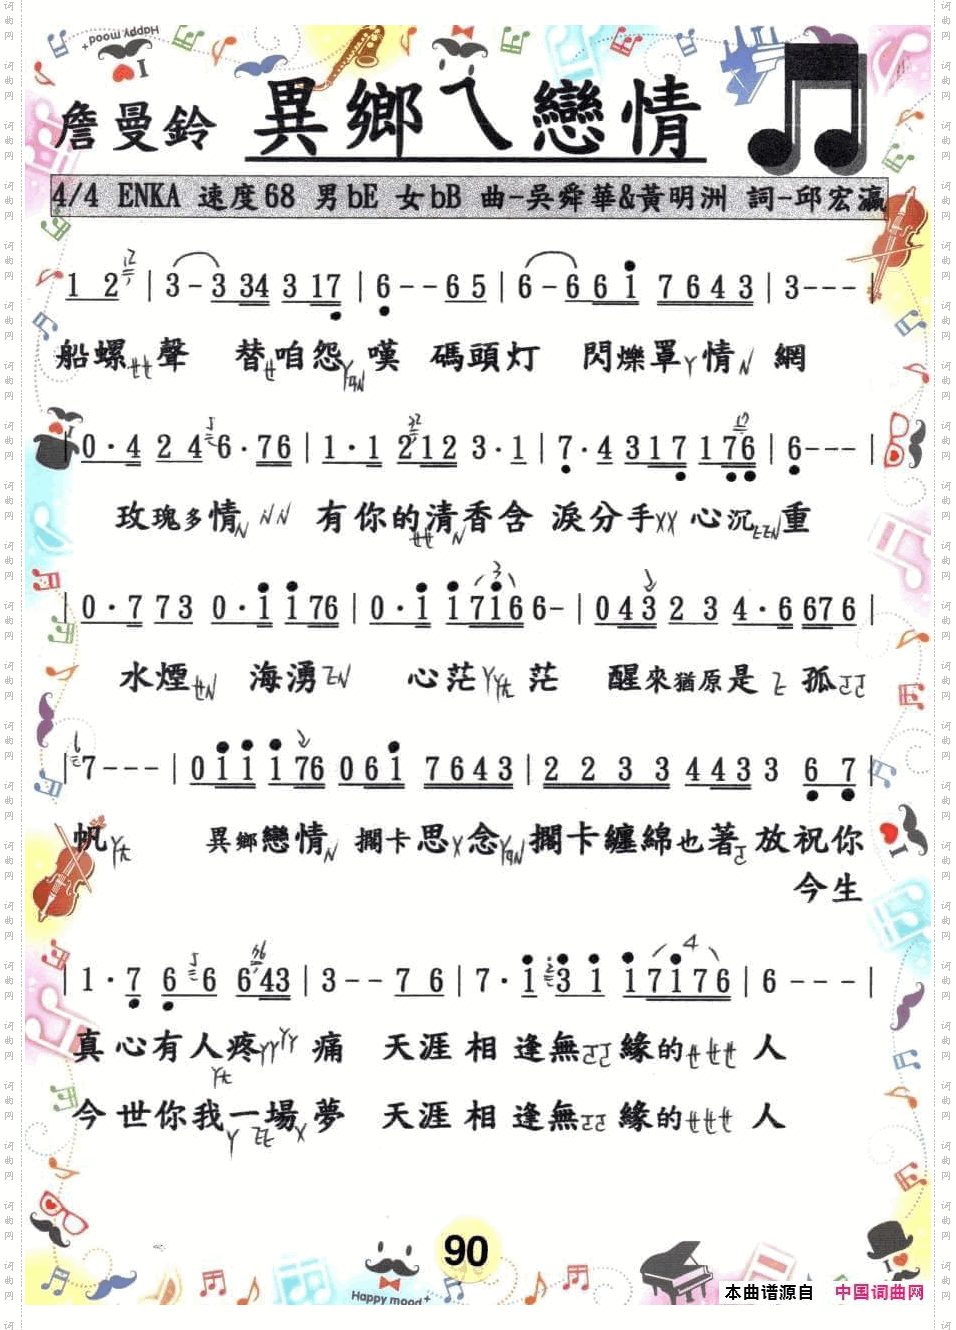 Happy mood+
I
詹曼鈴 異鄉ㄟ戀情
4/4 ENKA 速度68 男bE 女bB 曲-吳舜華&黃明洲 詞-邱宏瀛
1 2 | 3 - 3 34 3 17 | 6 - - 6 5 | 6 - 6 6 i 7 6 4 3 | 3 - - - |
船螺ㄝㄝ聲 替ㄝ咱怨 嘆 碼頭灯 閃爍罩ㄚ情ㄣ 網
| 0 · 4 2 4 6 · 76 | 1 · 1 2 12 3 · 1 | 7 · 4 3 17 1 76 | 6 - - - |
玫瑰多情 有你的清香含 淚分手 心沉 重
| 0 · 7 7 3 0 · i i 76 | 0 · i i 7i6 6 - | 0 4 3 2 3 4 · 6 67 6 |
水煙 海湧 心茫 茫 醒來猶原是 孤
| 7 - - - | 0 i i i 76 0 6 i 7 6 4 3 | 2 2 3 3 4 43 3 6 7 |
帆 異鄉戀情 擱卡思 念 擱卡纏綿也著 放祝你
今生
| 1 · 7 6 6 6 43 | 3 - - 7 6 | 7 · i 3 i i 7i76 | 6 - - - |
真心有人疼 痛 天涯相逢無 緣的ㄝㄝㄝ 人
今世你我一場 夢 天涯相逢無 緣的ㄝㄝㄝ 人
90
Happy mood+
本曲谱源自 中国词曲网